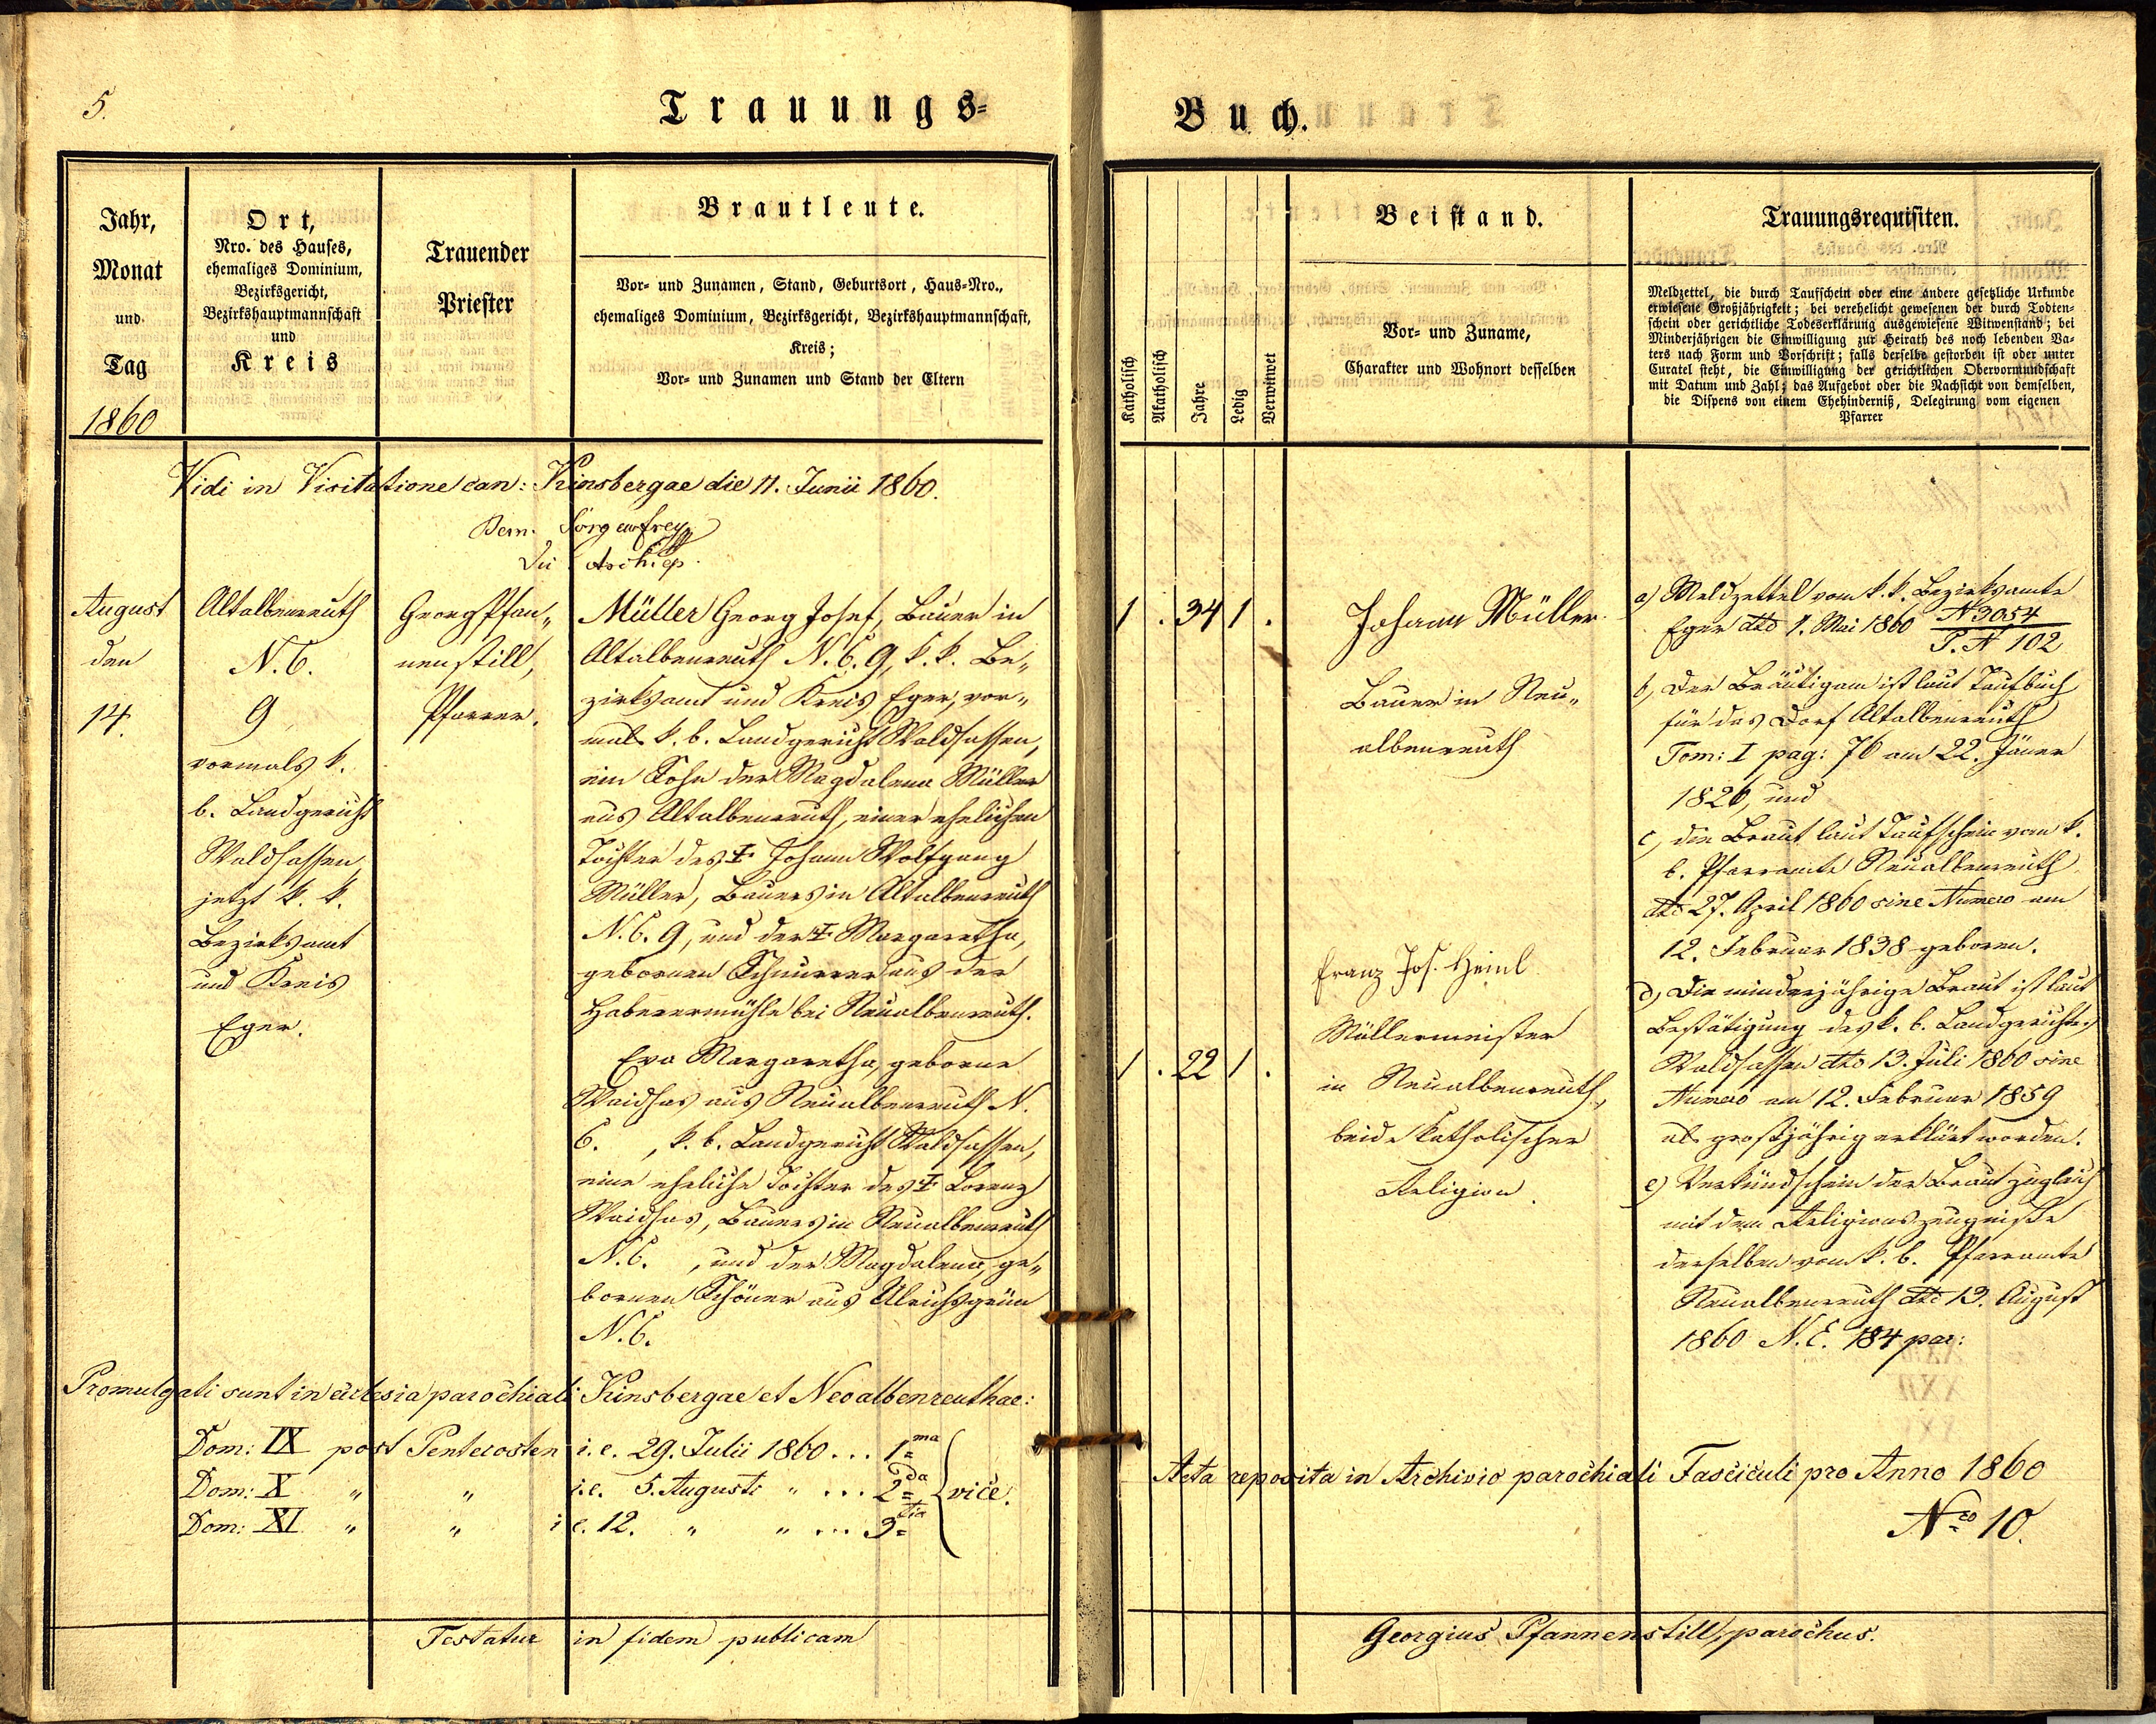 5.
Trauungs-
Jahr,
Monat
und
Tag
1860
Ort,
Nro. des Hauses,
ehemaliges Dominium,
Bezirksgericht,
Bezirkshauptmannschaft
und
Kreis
Trauender
Priester
Brautleute.
Vor- und Zunamen, Stand, Geburtsort, Haus-Nro.,
ehemaliges Dominium, Bezirksgericht, Bezirkshauptmannschaft,
Kreis;
Vor- und Zunamen und Stand der Eltern
Vidi in Visitatione can: Kinsbergae die 11. Junii 1860.
Bern. Sörgenfrey
Archiep.
August
den
14.
Altalbenreuth
N. C.
9
vormals k.
b. Landgericht
Waldsassen,
jetzt k. k.
Bezirksamt
und Kreis
Eger.
Georg Pfan„
nenstill,
Pfarrer.
Müller Georg Josef, Bauer in
Altalbenreuth N. C. 9, k. k. Be„
zirksamt und Kreis Eger, vor„
mals k. b. Landgericht Waldsassen,
ein Sohn der Magdalena Müller
aus Altalbenreuth, einer ehelichen
Tochter des ✝ Johann Wolfgang
Müller, Bauers in Altalbenreuth
N. C. 9, und der ✝ Margaretha,
gebornen Schnurrer aus der
Haberermühle bei Neualbenreuth.
Eva Margaretha, geborne
Waidhas aus Neualbenreuth N.
C. , k. b. Landgericht Waldsassen,
eine eheliche Tochter des ✝ Lorenz
Waidhas, Bauers in Neualbenreuth
N. C. , und der Magdalena, ge„
bornen Schöner aus Ulrichsgrün
N. C.
Promulgati sunt in ecclesia parochiali Kinsbergae et Neoalbenreuthae:
Dom: IX post Pentecosten i. e. 29. Julii 1860 ... 1ma
Dom: X „ „ i. e. 5. Augusti „ ... 2da vice.
Dom: XI „ „ i. e. 12. „ „ ... 3tia
Testatur in fidem publicam
Buch.
Katholisch
Akatholisch
Jahre
Ledig
Verwitwet
Beistand.
Vor- und Zuname,
Charakter und Wohnort desselben
Trauungsrequisiten.
Meldzettel, die durch Taufschein oder eine andere gesetzliche Urkunde
erwiesene Großjährigkeit; bei verehelicht gewesenen der durch Todten-
schein oder gerichtliche Todeserklärung ausgewiesene Witwenstand; bei
Minderjährigen die Einwilligung zur Heirath des noch lebenden Va-
ters nach Form und Vorschrift; falls derselbe gestorben ist oder unter
Curatel steht, die Einwilligung der gerichtlichen Obervormundschaft
mit Datum und Zahl; das Aufgebot oder die Nachsicht von demselben,
die Dispens von einem Ehehinderniß, Delegirung vom eigenen
Pfarrer
1 . 34 1 .
1 . 22 1 .
Johann Müller
Bauer in Neu„
albenreuth
Franz Jos. Heinl
Müllermeister
in Neualbenreuth,
beide katholischer
Religion.
a) Meldzettel vom k. k. Bezirksamte
Eger dto 1. Mai 1860 N 3054
P. N 102
b) Der Bräutigam ist laut Taufbuch
für das Dorf Altalbenreuth
Tom: I pag: 76 am 22. Jäner
1826, und
c) die Braut laut Taufschein vom k.
b. Pfarramte Neualbenreuth
dto 27. April 1860 sine Numero am
12. Februar 1838 geboren.
d) Die minderjährige Braut ist laut
Bestätigung des k. b. Landgerichtes
Waldsassen dto 13. Juli 1860 sine
Numero am 12. Februar 1859
als großjährig erklärt worden.
e) Verkündschein der Braut zugleich
mit dem Religionszeugnisse
derselben vom k. b. Pfarramte
Neualbenreuth dto 13. August
1860 N. E. 184 par:
Acta reposita in Archivio parochiali Fasciculi pro Anno 1860
Nro 10.
Georgius Pfannenstill, parochus.